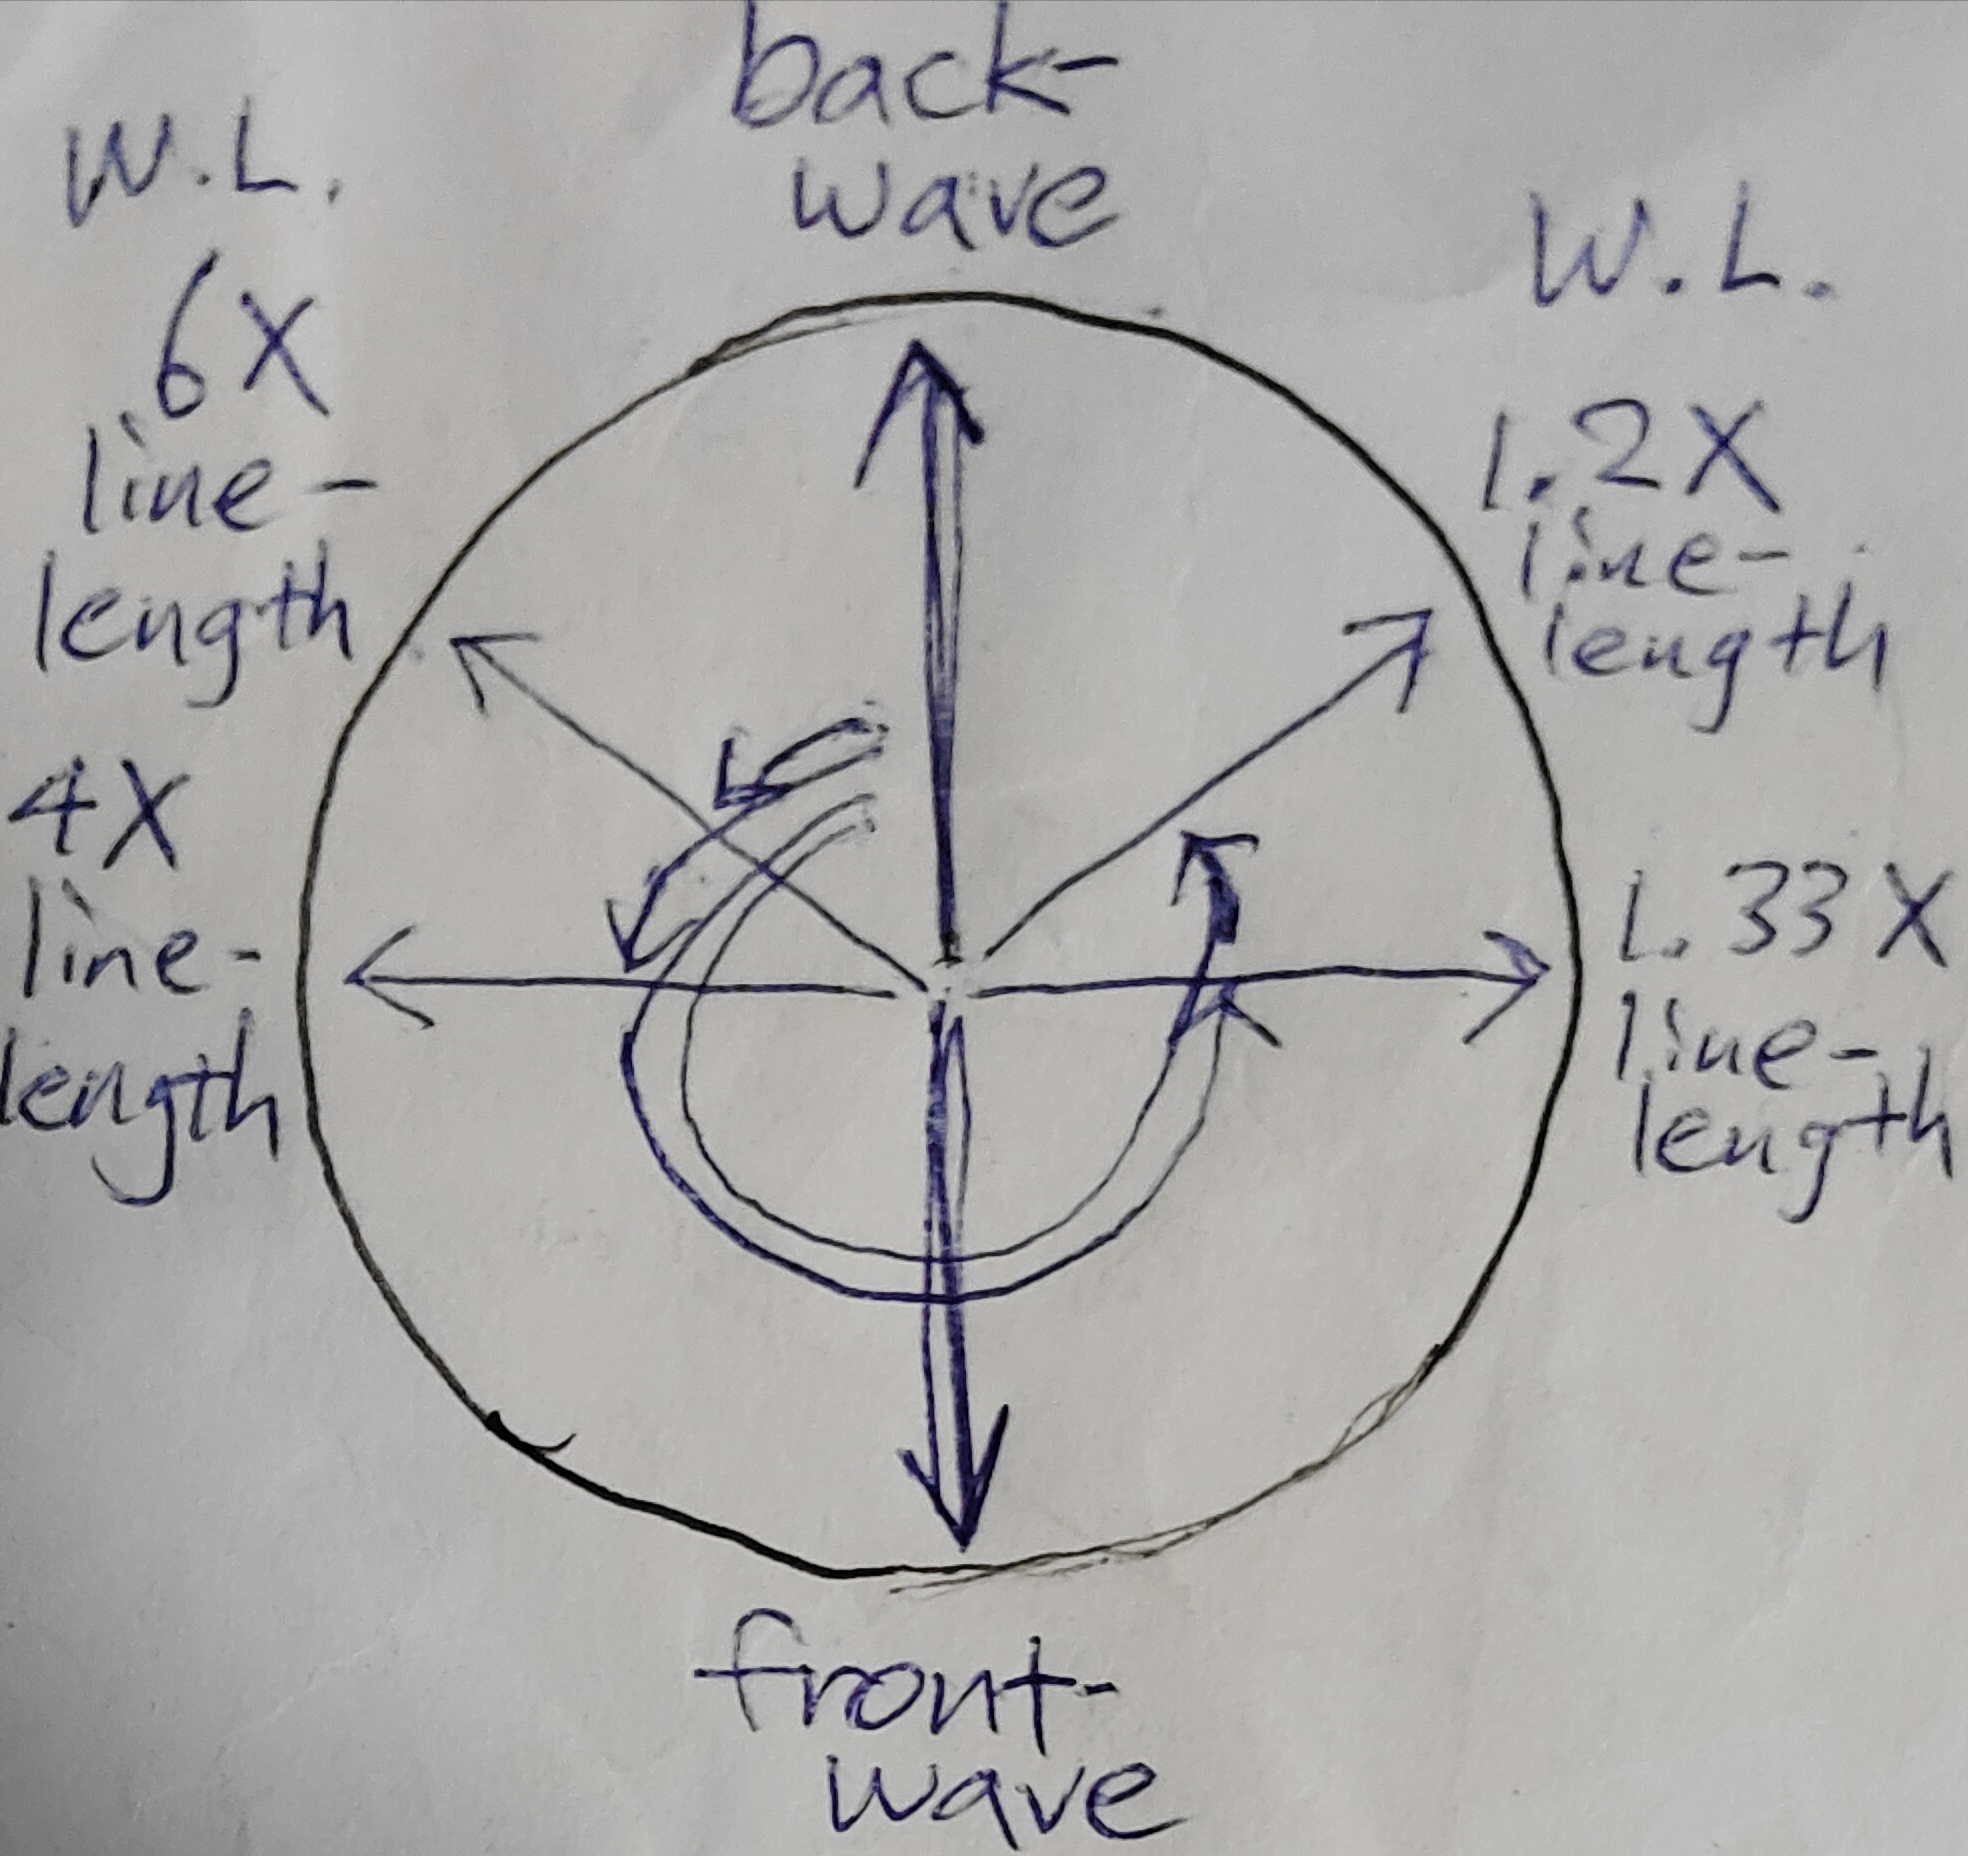 back-
wave
W.L.
6X
line-
length
4X
line-
length
W.L.
1.2X
line-
length
1.33X
line-
length
front-
wave